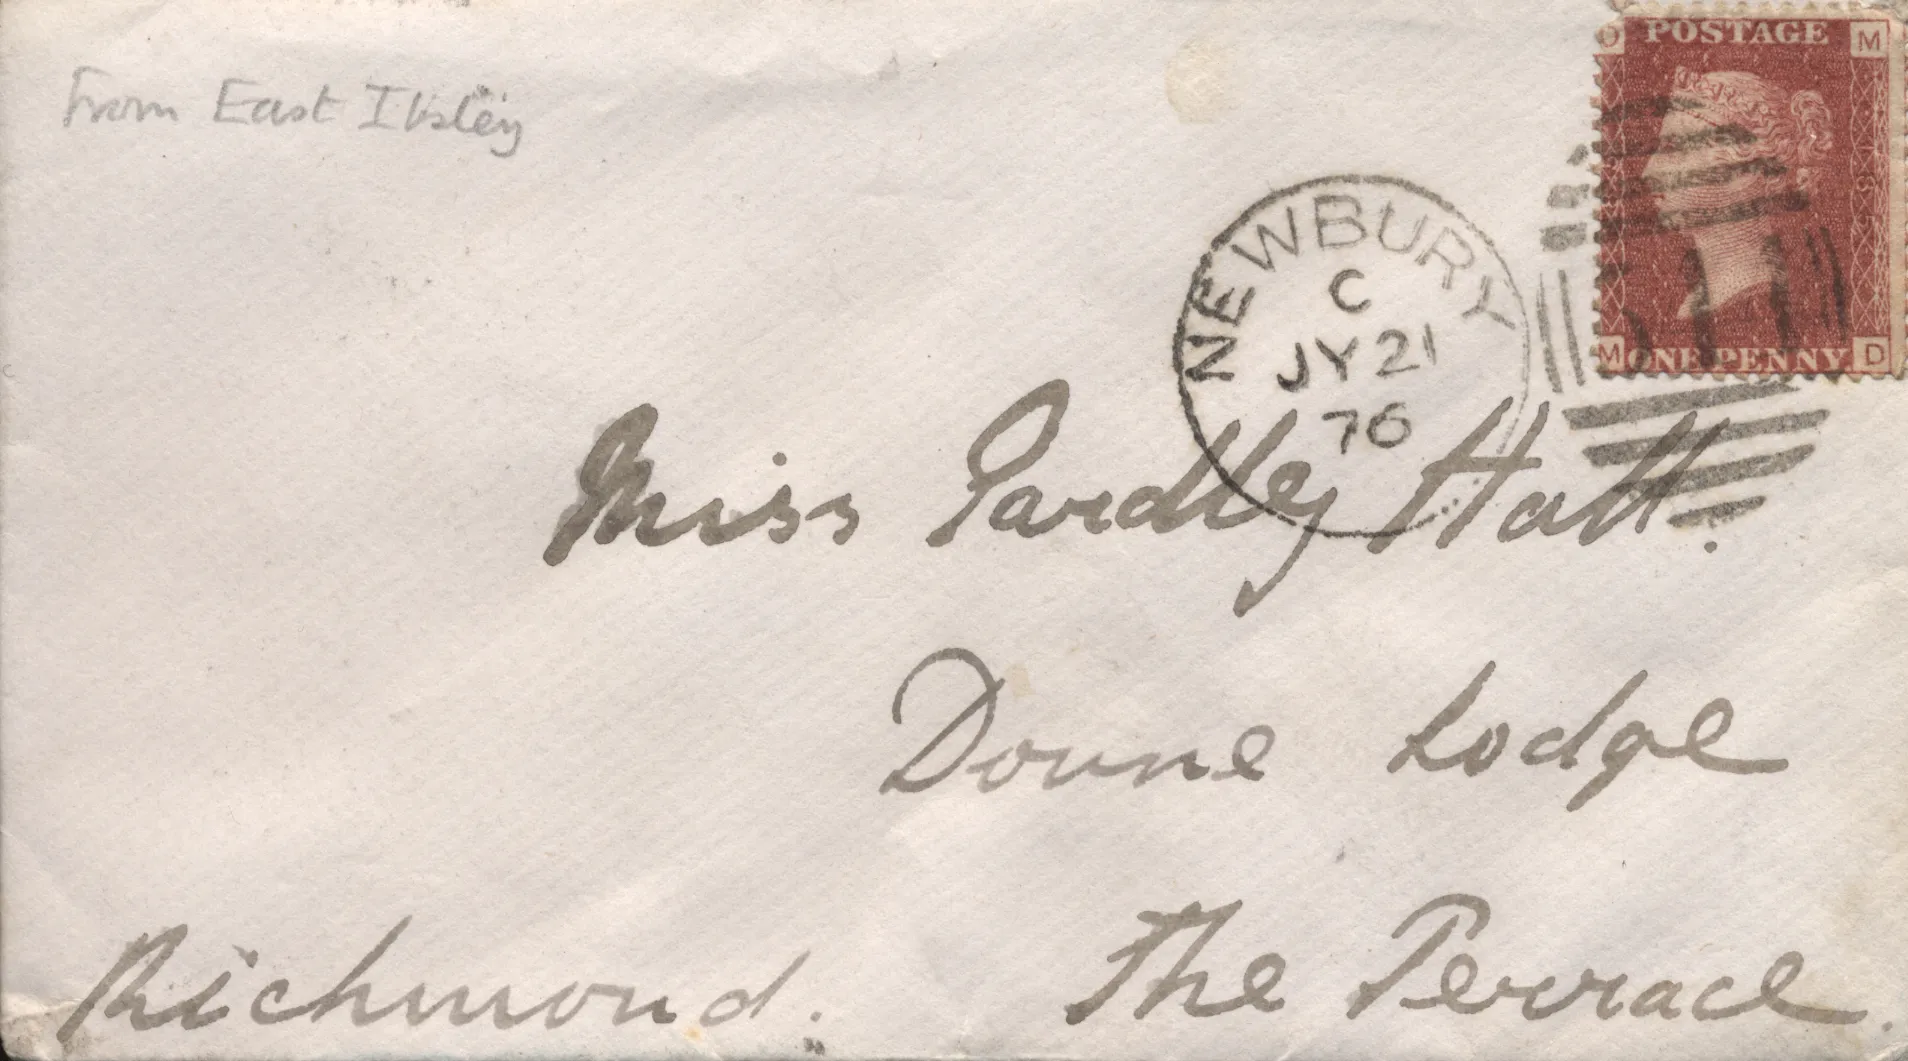 From East Ilsley
POSTAGE
O M
M D
ONE PENNY
NEWBURY
C
JY 21
76
Miss Pardly Hall.
Doune Lodge
The Terrace.
Richmond.